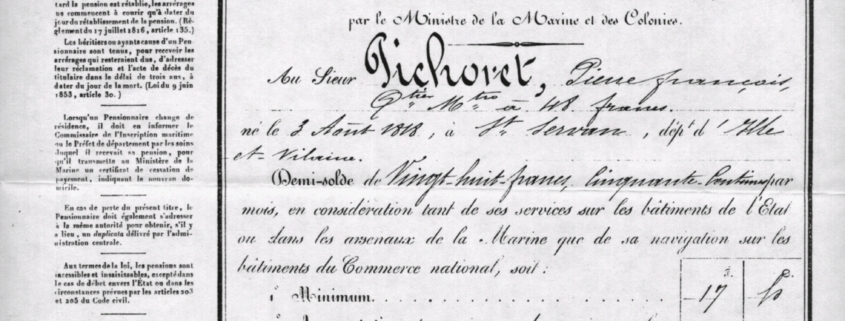 tard la pension est rétablie, les arrérages
ne commencent à courir qu'à dater du
jour du rétablissement de la pension. (Rè-
glement du 17 juillet 1816, article 135.)
Les héritiers ou ayants cause d'un Pen-
sionnaire sont tenus, pour recevoir les
arrérages qui resteraient dus, d'adresser
leur réclamation et l'acte de décès du
titulaire dans le délai de trois ans, à
dater du jour de la mort. (Loi du 9 juin
1853, article 30.)
Lorsqu'un Pensionnaire change de
résidence, il doit en informer le
Commissaire de l'Inscription maritime
ou le Préfet de département par les soins
duquel il recevait sa pension, pour
qu'il transmette au Ministère de la
Marine un certificat de cessation de
payement, indiquant le nouveau do-
micile.
En cas de perte du présent titre, le
Pensionnaire doit également s'adresser
à la même autorité pour obtenir, s'il y
a lieu, un duplicata délivré par l'admi-
nistration centrale.
Aux termes de la loi, les pensions sont
incessibles et insaisissables, excepté dans
le cas de débet envers l'État ou dans les
circonstances prévues par les articles 203
et 205 du Code civil.
par le Ministre de la Marine et des Colonies.
Au Sieur Pichoret, Pierre François,
Qier Mtre à 48 francs.
né le 3 Août 1818, à St Servan, dépt d'Ille
et-Vilaine.
Demi-solde de Vingt-huit francs Cinquante Centimes par
mois, en considération tant de ses services sur les bâtiments de l'État
ou dans les arsenaux de la Marine que de sa navigation sur les
bâtiments du Commerce national, soit :
1° Minimum. 17